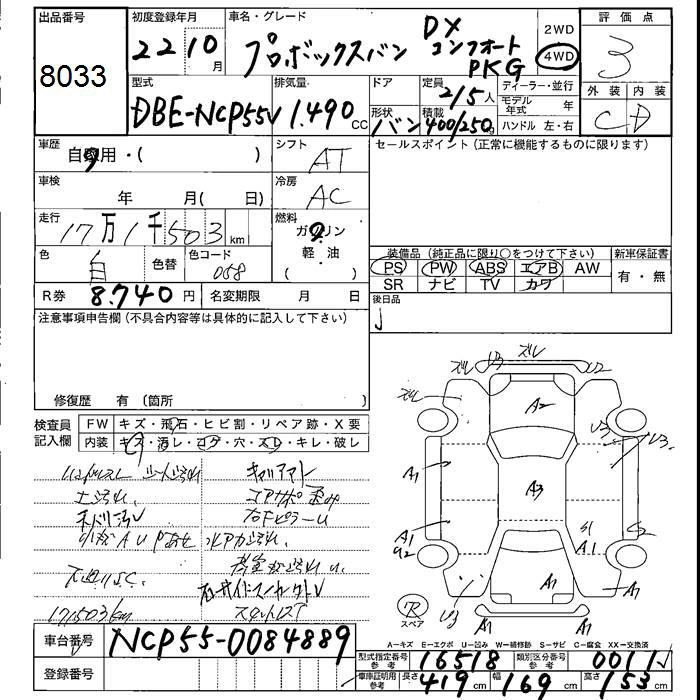 出品番号
8033
初度登録年月
22 10 月
車名・グレード
プロボックスバン
DX
コンフォート
PKG
2WD
4WD
評価点
3
外装 内装
C D
型式
DBE-NCP55V
排気量
1.490 cc
ドア
形状
バン
定員
2/5 人
積載
400/250 g
ディーラー・並行
モデル年式 年
ハンドル 左・右
車歴
自家用・( )
シフト
AT
セールスポイント(正常に機能するものに限ります)
車検
年 月( 日)
冷房
AC
走行
17万1千503 km
燃料
ガソリン
軽・油
( )
色
白
色替
色コード
058
装備品(純正品に限り○をつけて下さい)
PS PW ABS エアB AW
SR ナビ TV カワ
新車保証書
有・無
R券 8.740 円
名変期限 月 日
後日品
注意事項申告欄(不具合内容等は具体的に記入して下さい)
修復歴 有(箇所
検査員記入欄
FW キズ・飛石・ヒビ割・リペア跡・X要
内装 キズ・汚レ・コゲ・穴・スレ・キレ・破レ
シート汚れ
コアサポ歪み
171503km
スタットレス
ズレ
ズレ U3 U2
ズレ
A2
U3 U3
A1
A3
A1
U2
S1
A1
S2
U3
A1
A1
A1
A1
スペア
A-キズ E-エクボ U-凹み W-補修跡 S-サビ C-腐食 XX-交換済
車台番号
NCP55-0084889
登録番号
型式指定番号 参考
16518
類別区分番号 参考
0011
車庫証明用 参考
長さ 419 cm
幅 169 cm
高さ 153 cm